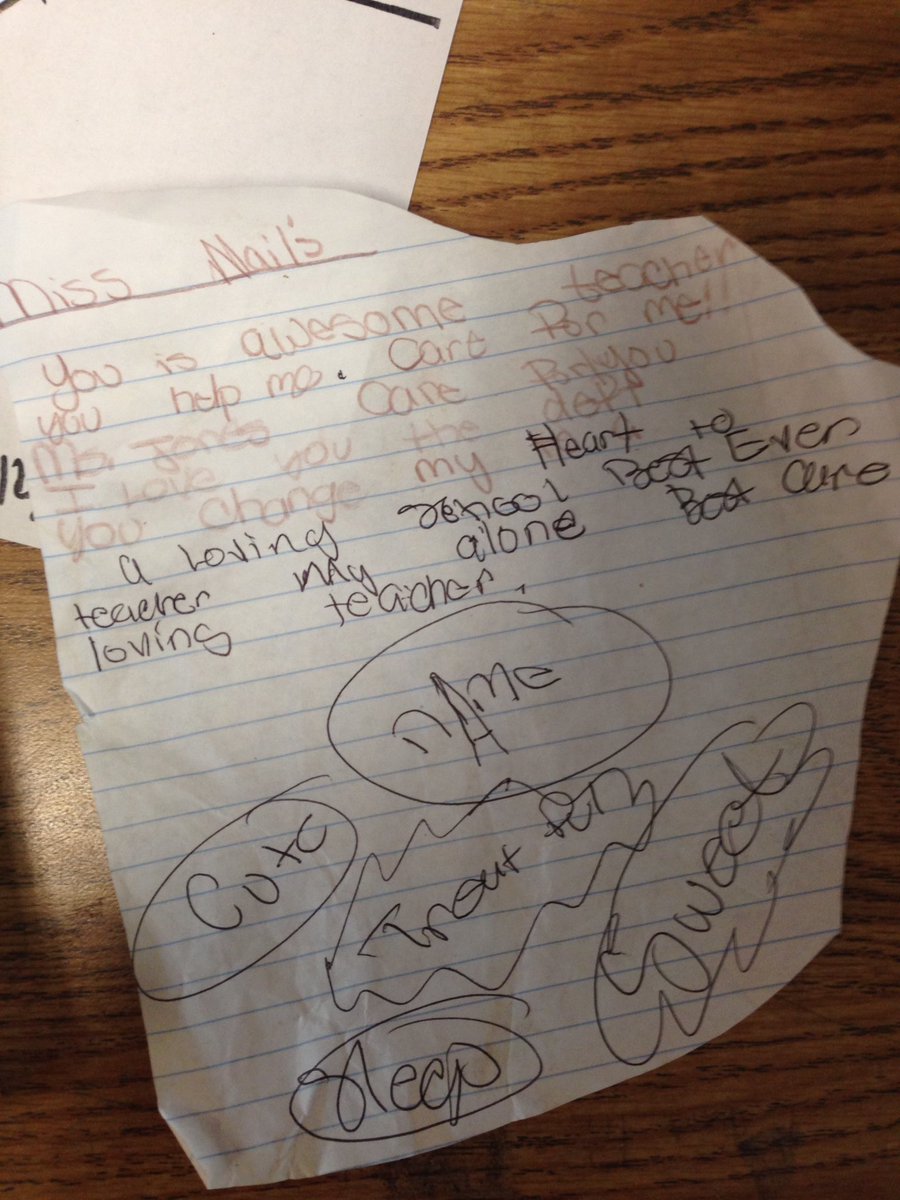 Miss Nail's
You is awesome teacher
you help me. Care For me!!
Ms. Jones Care For you
I Love you the
You change my Heart to
a loving Best Ever
teacher my alone Best Care
loving teacher.
NAME
Cute
Sweet
Sleep
12